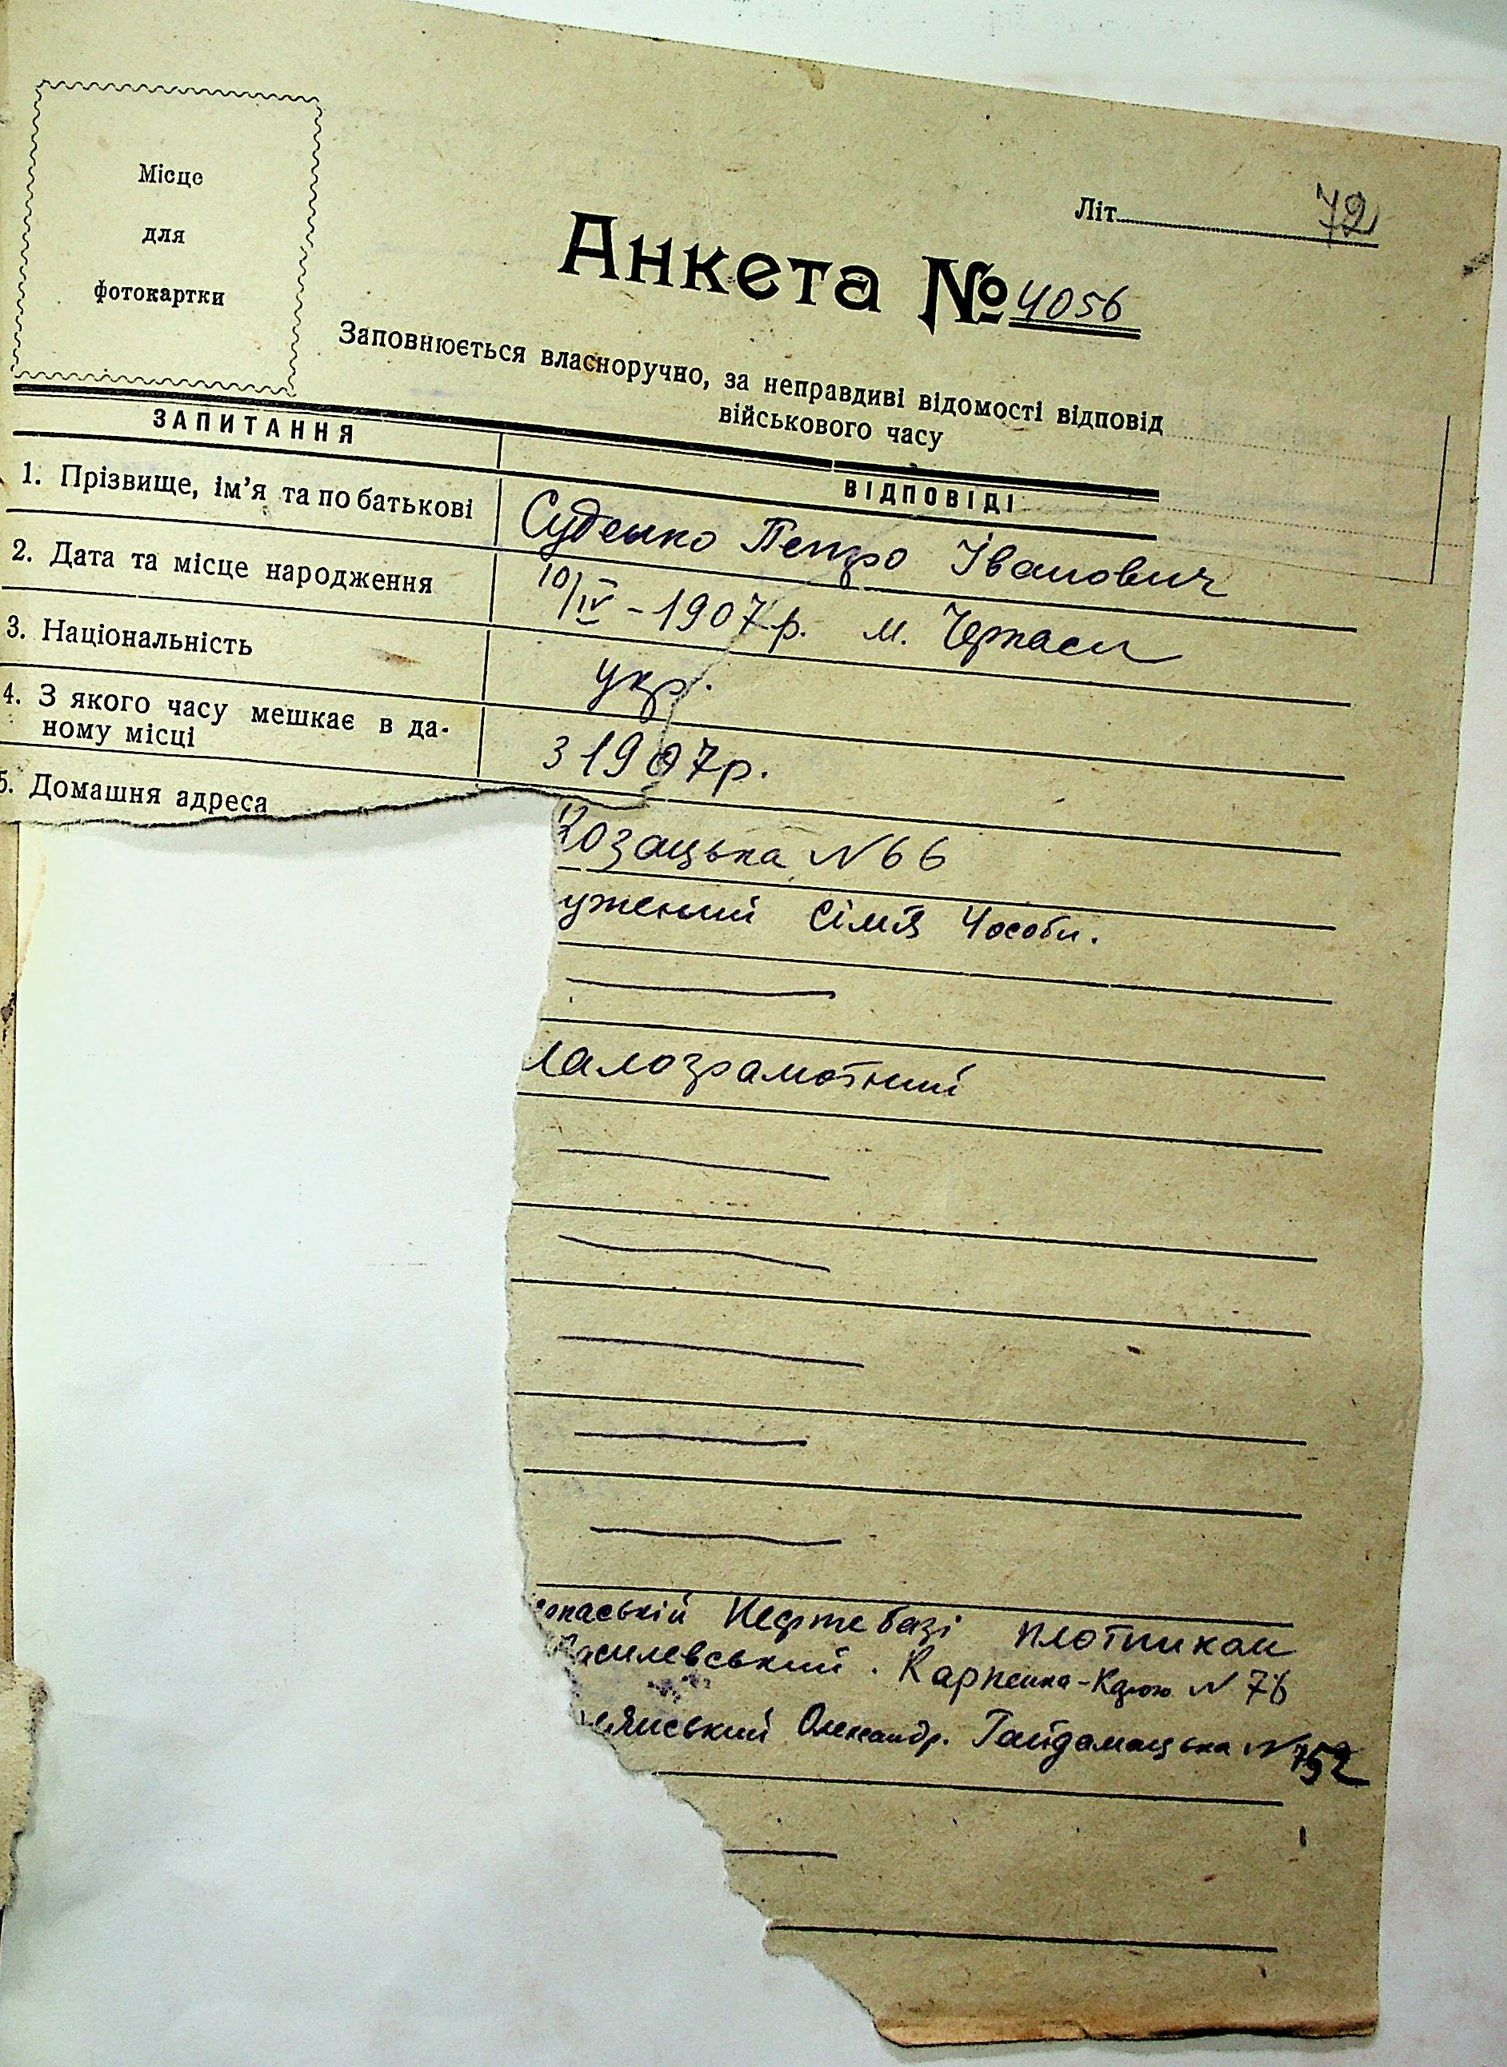 Місце
для
фотокартки
Літ. 72
Анкета № 4056
Заповнюється власноручно, за неправдиві відомості відповід
військового часу
ЗАПИТАННЯ
ВІДПОВІДІ
1. Прізвище, ім'я та по батькові Суденко Петро Іванович
2. Дата та місце народження 10/IV - 1907 р. м. Черкаси
3. Національність укр.
4. З якого часу мешкає в да-
ному місці з 1907 р.
5. Домашня адреса
Козацька N 66
ужений Сімя 4 особи.
малограмотний
Нефтебазі плотником
Василевський. Карпенка- N 76
Олександр. Гайдамацька N 52